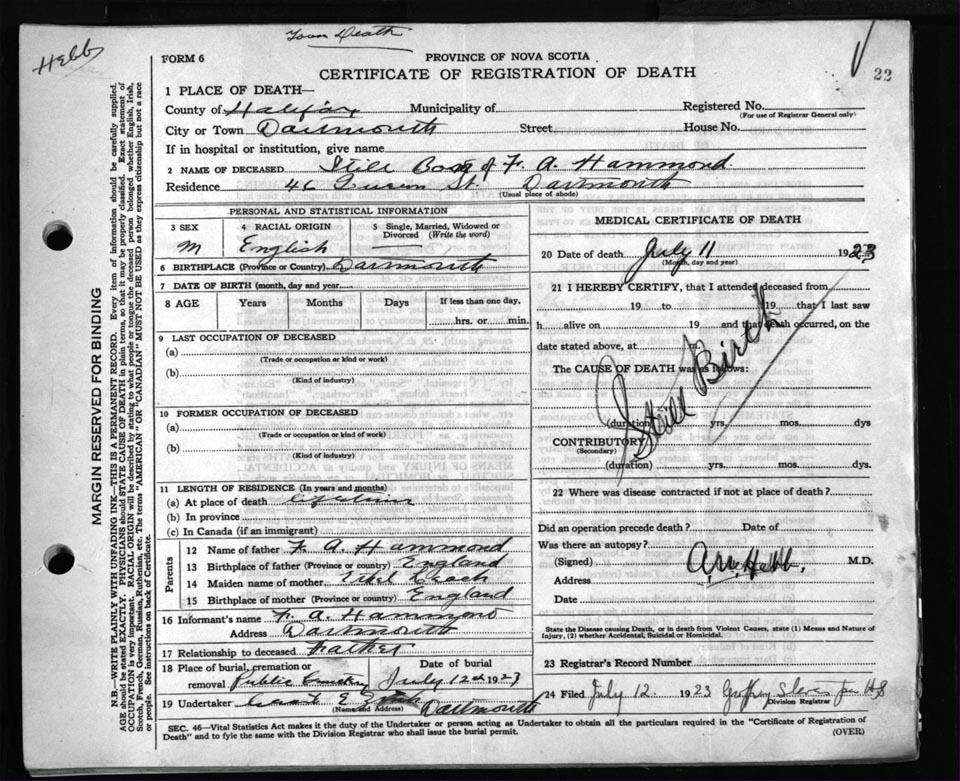 Town Death
Hebb
22
FORM 6
PROVINCE OF NOVA SCOTIA
CERTIFICATE OF REGISTRATION OF DEATH
1 PLACE OF DEATH—
County of Halifax Municipality of
Registered No.
(For use of Registrar General only)
City or Town Dartmouth Street House No.
If in hospital or institution, give name
2 NAME OF DECEASED Still Born of F. A. Hammond
Residence 46 Queen St. Dartmouth
(Usual place of abode)
PERSONAL AND STATISTICAL INFORMATION
3 SEX 4 RACIAL ORIGIN 5 Single, Married, Widowed or Divorced (Write the word)
M English
6 BIRTHPLACE (Province or Country) Dartmouth
7 DATE OF BIRTH (month, day and year)
8 AGE Years Months Days If less than one day,
hrs. or min.
9 LAST OCCUPATION OF DECEASED
(a)
(Trade or occupation or kind or work)
(b)
(Kind of industry)
10 FORMER OCCUPATION OF DECEASED
(a)
(Trade or occupation or kind or work)
(b)
(Kind of industry)
11 LENGTH OF RESIDENCE (In years and months)
(a) At place of death lifetime
(b) In province
(c) In Canada (if an immigrant)
Parents
12 Name of father F. A. Hammond
13 Birthplace of father (Province or country) England
14 Maiden name of mother Ethel
15 Birthplace of mother (Province or country) England
16 Informant's name F. A. Hammond
Address Dartmouth
17 Relationship to deceased Father
18 Place of burial, cremation or removal Public Cemetery
Date of burial July 12th 1923
19 Undertaker
(Name and Address) Dartmouth
MEDICAL CERTIFICATE OF DEATH
20 Date of death July 11 1923
(Month, day and year)
21 I HEREBY CERTIFY, that I attended deceased from
19 to 19 that I last saw
h alive on 19 and that death occurred, on the
date stated above, at m.
The CAUSE OF DEATH was as follows:
Still Birth
(duration) yrs. mos. dys
CONTRIBUTORY
(Secondary)
(duration) yrs. mos. dys.
22 Where was disease contracted if not at place of death?
Did an operation precede death? Date of
Was there an autopsy?
(Signed) Hebb M.D.
Address
Date
State the Disease causing Death, or in death from Violent Causes, state (1) Means and Nature of
Injury, (2) whether Accidental, Suicidal or Homicidal.
23 Registrar's Record Number
24 Filed July 12 1923
Division Registrar
SEC. 46—Vital Statistics Act makes it the duty of the Undertaker or person acting as Undertaker to obtain all the particulars required in the "Certificate of Registration of
Death" and to fyle the same with the Division Registrar who shall issue the burial permit.
(OVER)
MARGIN RESERVED FOR BINDING
N.B.—WRITE PLAINLY WITH UNFADING INK—THIS IS A PERMANENT RECORD. Every item of information should be carefully supplied.
AGE should be stated EXACTLY. PHYSICIANS should STATE CAUSE OF DEATH in plain terms, so that it may be properly classified. Exact statement of
OCCUPATION is very important. RACIAL ORIGIN will be described by stating to what people or tongue the deceased person belonged, whether English, Irish,
Scotch, French, German, Russian, Ruthenian, etc. The terms "AMERICAN" OR "CANADIAN" MUST NOT BE USED as they express citizenship but not a race
or people. See instructions on back of Certificate.